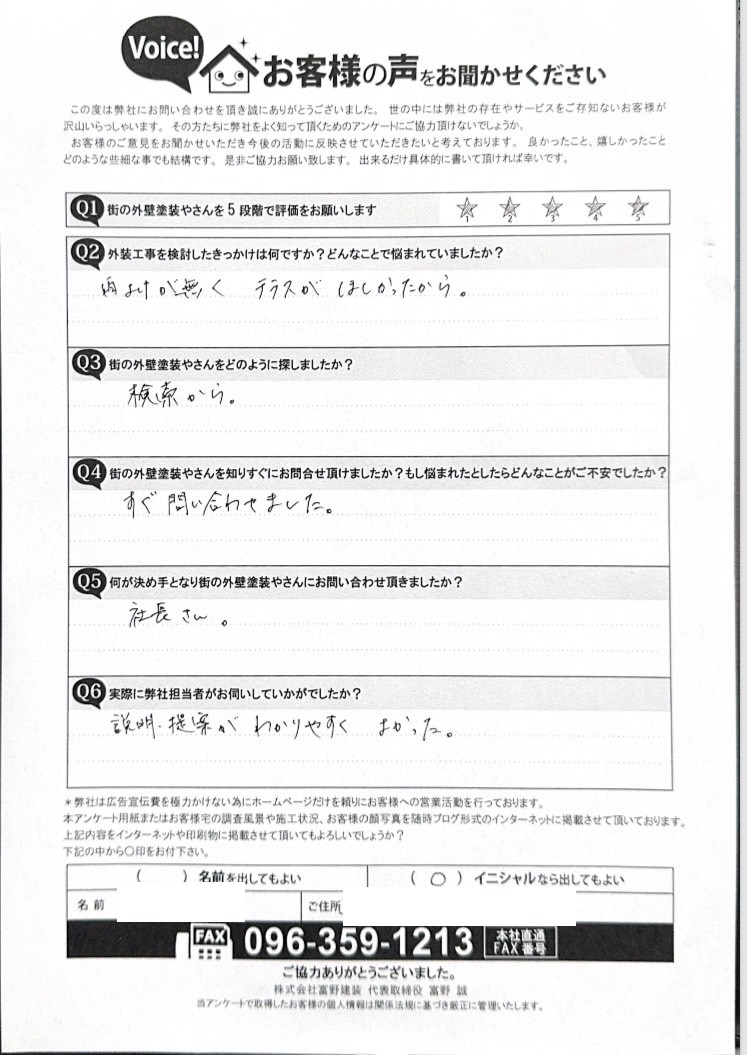 Voice!
お客様の声をお聞かせください
この度は弊社にお問い合わせを頂き誠にありがとうございました。 世の中には弊社の存在やサービスをご存知ないお客様が
沢山いらっしゃいます。 その方たちに弊社をよく知って頂くためのアンケートにご協力頂けないでしょうか。
お客様のご意見をお聞かせいただき今後の活動に反映させていただきたいと考えております。 良かったこと、嬉しかったこと
どのような些細な事でも結構です。 是非ご協力お願い致します。 出来るだけ具体的に書いて頂ければ幸いです。
Q1 街の外壁塗装やさんを5段階で評価をお願いします 1 2 3 4 5
Q2 外装工事を検討したきっかけは何ですか？どんなことで悩まれていましたか？
雨よけが無く テラスが ほしかったから。
Q3 街の外壁塗装やさんをどのように探しましたか？
検索から。
Q4 街の外壁塗装やさんを知りすぐにお問合せ頂けましたか？もし悩まれたとしたらどんなことがご不安でしたか？
すぐ 問い合わせました。
Q5 何が決め手となり街の外壁塗装やさんにお問い合わせ頂きましたか？
社長さん。
Q6 実際に弊社担当者がお伺いしていかがでしたか？
説明・提案が わかりやすく よかった。
＊弊社は広告宣伝費を極力かけない為にホームページだけを頼りにお客様への営業活動を行っております。
本アンケート用紙またはお客様宅の調査風景や施工状況、お客様の顔写真を随時ブログ形式のインターネットに掲載させて頂いております。
上記内容をインターネットや印刷物に掲載させて頂いてもよろしいでしょうか？
下記の中から〇印をお付下さい。
（ ）名前を出してもよい （ ○ ）イニシャルなら出してもよい
名前 ご住所
FAX 096-359-1213 本社直通 FAX番号
ご協力ありがとうございました。
株式会社富野建装 代表取締役 富野 誠
当アンケートで取得したお客様の個人情報は関係法規に基づき厳正に管理いたします。